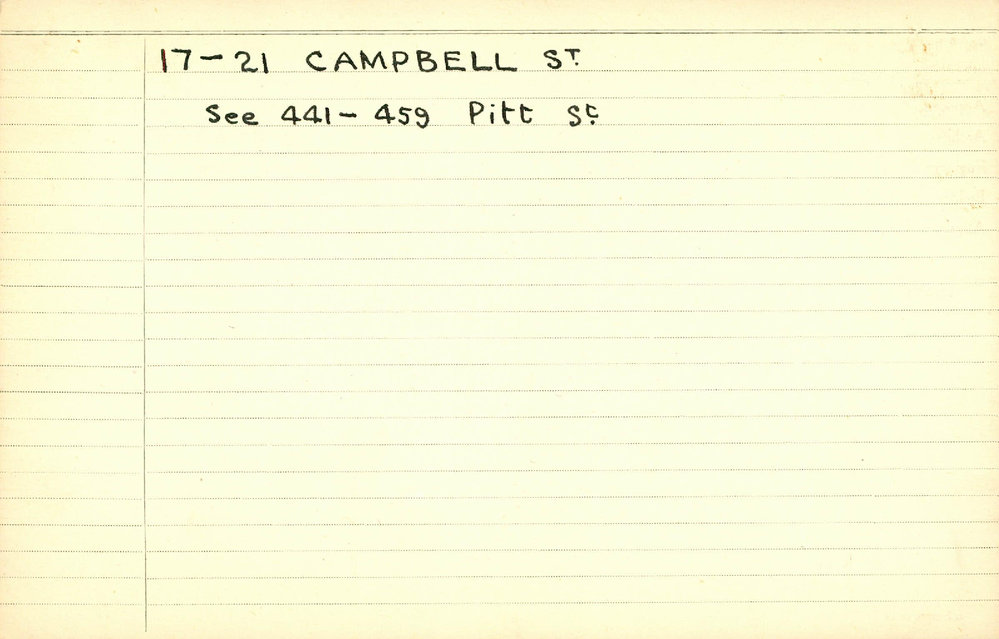 17-21 CAMPBELL ST.
See 441-459 Pitt St.